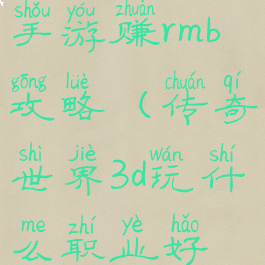 shǒu yóu zhuàn
手游赚rmb
gōng lüè chuán qí
攻略（传奇
shì jiè wán shí
世界3d玩什
me zhí yè hǎo
么职业好